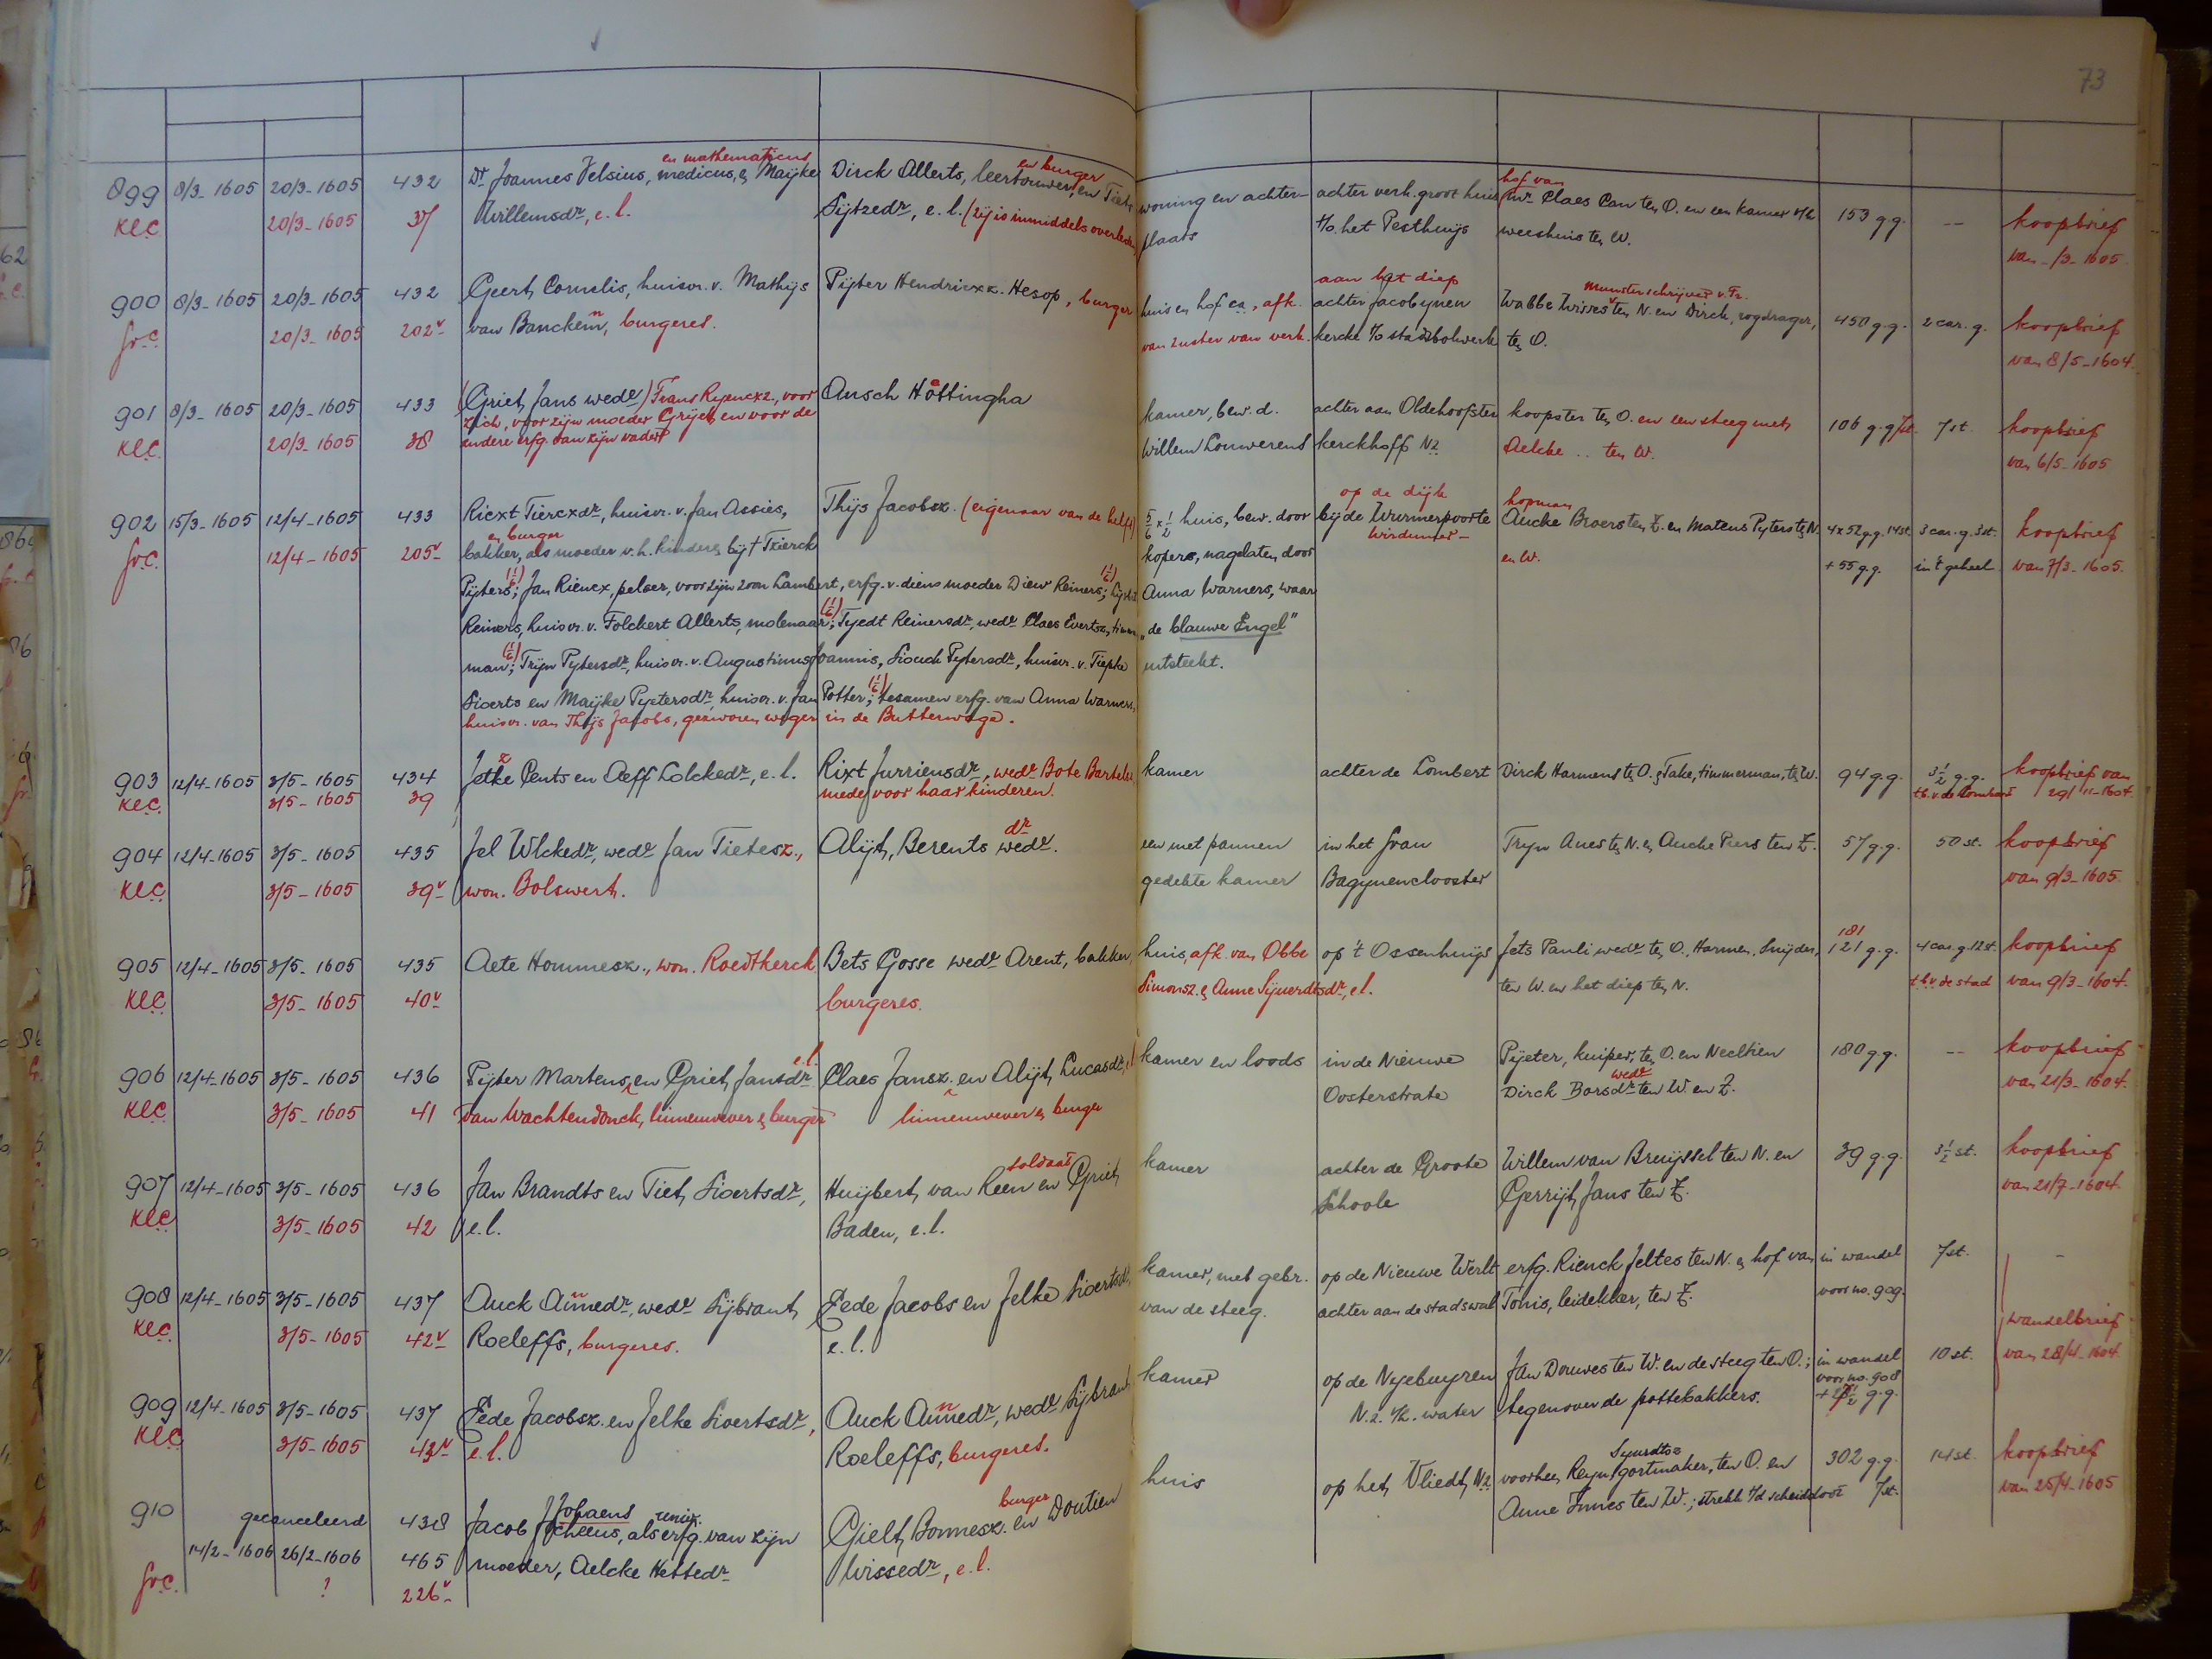 73
899 8/3-1605 20/3-1605 432 Dr Joannes Velsius, medicus, en mathematicus, Maijke Dirck Allerts, leertouwer, en burger en Tieth woning en achter- achter verk. groot huis hof van mr Claes Can ten O. en een kamer v/h 153 g.g. -- koopbrief
KLC 20/3-1605 37 Willemsdr, e.l. Sijtzedr, e.l. (zij is inmiddels overleden) plaats t/o het Pesthuijs weeshuis ten W. van -/3-1605
900 8/3-1605 20/3-1605 432 Geert Cornelis, huisvr. v. Mathijs Pijter Hendricxz. Hesop, burger huis en hof ca, afk. aan het diep achter Jacobynen Wabbe Wisses munsterschrijver v. Fr. ten N. en Dirck, rogdrager, 450 g.g. 2 car. g. koopbrief
GrC 20/3-1605 202v van Banckem, burgeres. van zuster van verk. kercke t/o stadsbolwerk ten O. van 8/5-1604.
901 8/3-1605 20/3-1605 433 (Griet Jans wedr) Frans Ryencxz., voor Ansch Hottingha kamer, bew. d. achter aan Oldehoofster koopster ten O. en een steeg met 106 g.g. 7 st. 7 st. koopbrief
zich, voor zijn moeder Grijet en voor de
KLC 20/3-1605 38 andere erfg. van zijn vader Willem Louwerens kerckhoff NZ Aelcke .. ten W. van 6/5-1605
902 15/3-1605 12/4-1605 433 Riext Tierxdr, huisvr. v. Jan Assies, Thijs Jacobsz. (eigenaar van de helft) 5/6 x 1/2 huis, bew. door op de dijk bij de Wurmerpoorte Wirdumer- hopman Aucke Broers ten Z. en Mateus Pyters ten N. 4x52 g.g. 14 st. 3 car. g. 3 st. koopbrief
GrC 12/4-1605 205v bakker, en burger als moeder v. h. kinderen bij † Tzierck kopers, nagelaten door en W. + 55 g.g. in 't geheel van 7/3-1605.
Pijters; (1/6) Jan Riencx, pelser, voor zijn zoon Lambert, erfg. v. diens moeder Diew Reiners; (1/6) Lijsbet Anna Warners, waar
Reiners, huisvr. v. Folckert Allerts, molenaar; (1/6) Tyedt Reinersdr, wedr Claes Evertsz, timmer- "de blauwe Engel"
man; (1/6) Trijn Pytersdr, huisvr. v. Augustinus Joannis, Siouck Pytersdr, huisvr. v. Tiepke uitsteekt.
Sioerts en Maijke Pyetersdr, huisvr. v. Jan Potter; (1/6) tesamen erfg. van Anna Warners,
huisvr. van Thijs Jacobs, gezworen weger in de Butterwage.
903 12/4-1605 3/5-1605 434 Jetke Cents en Aeff Lolckedr, e.l. Rixt Jurriensdr, wedr Bote Bartels kamer achter de Lombert Dirck Harmens ten O. en Take, timmerman, ten W. 94 g.g. 3 1/2 g.g. koopbrief van
KLC 3/5-1605 39 mede voor haar kinderen. t.b.v. de Lombard 29/11-1604.
904 12/4-1605 3/5-1605 435 Jel Wlckedr, wedr Jan Tietesz., Alijt Berents dr wedr. een met pannen in het Gran Tryn Anes ten N. en Aucke Piers ten Z. 57 g.g. 50 st. koopbrief
KLC 3/5-1605 39v won. Bolswert. gedekte kamer Bagynenclooster van 9/3-1605.
905 12/4-1605 3/5-1605 435 Aete Hommesz., won. Roedtkerck Bets Gosse wedr Arent, bakker, huis, afk. van Obbe op 't Ossenhuijs Jets Pauli wedr ten O., Harmen, Snijder, 181 121 g.g. 4 car. g. 12 st. koopbrief
KLC 3/5-1605 40v burgeres. Simonsz. en Anne Sijuerdtsdr, e.l. ten W. en het diep ten N. t.b.v. de stad van 9/3-1604.
906 12/4-1605 3/5-1605 436 Pijter Martens en Griet Jansdr e.l. Claes Jansz. en Alijt Lucasdr, e.l. kamer en loods in de Nieuwe Pijeter, kuiper, ten O. en Neeltien 180 g.g. -- koopbrief
KLC 3/5-1605 41 van Wachtendonck, linnenwever en burger linnenwever en burger Oosterstrate Dirck Borsdr wedr ten W. en Z. van 21/3-1604.
907 12/4-1605 3/5-1605 436 Jan Brandts en Tiet Sioertsdr, Huijbert van Keen soldaat en Griet kamer achter de Groote Willem van Bruijssel ten N. en 39 g.g. 3 1/2 st. koopbrief
KLC 3/5-1605 42 e.l. Baden, e.l. Schoole Gerrijt Jans ten Z. van 21/7-1604.
908 12/4-1605 3/5-1605 437 Auck Annedr, wedr Sijbrant Fede Jacobs en Jelke Sioertsdr, kamer, met gebr. op de Nieuwe Werlt erfg. Rienck Jeltes ten N. en hof van in wandel 7 st. -
KLC 3/5-1605 42v Roeleffs, burgeres. e.l. van de steeg. achter aan de stadswal Tonis, leidekker, ten Z. voor no. 909. wandelbrief
909 12/4-1605 3/5-1605 437 Fede Jacobsz. en Jelke Sioertsdr, Auck Annedr, wedr Sijbrant kamer op de Nyebuyren Jan Douwes ten W. en de steeg ten O.; in wandel 10 st. van 28/4-1604.
voor no. 908
KLC 3/5-1605 43v e.l. Roeleffs, burgeres. N.Z. v/h. water tegenover de pottebakkers.
910 gecanceleerd 438 Jacob Jopaens Jocheems, als univ. erfg. van zijn Gielt Bonnesz. burger en Doutien huis op het Vliedt NZ voorheen Reyn Syurdtsz gortmaker, ten O. en 302 g.g. 14 st. koopbrief
14/2-1606 26/2-1606 465 moeder, Aelcke Hettedr Wissedr, e.l. Anne Innes ten W.; strekt t/d scheidsloot 7 st. van 25/4-1605
GrC. ? 226v